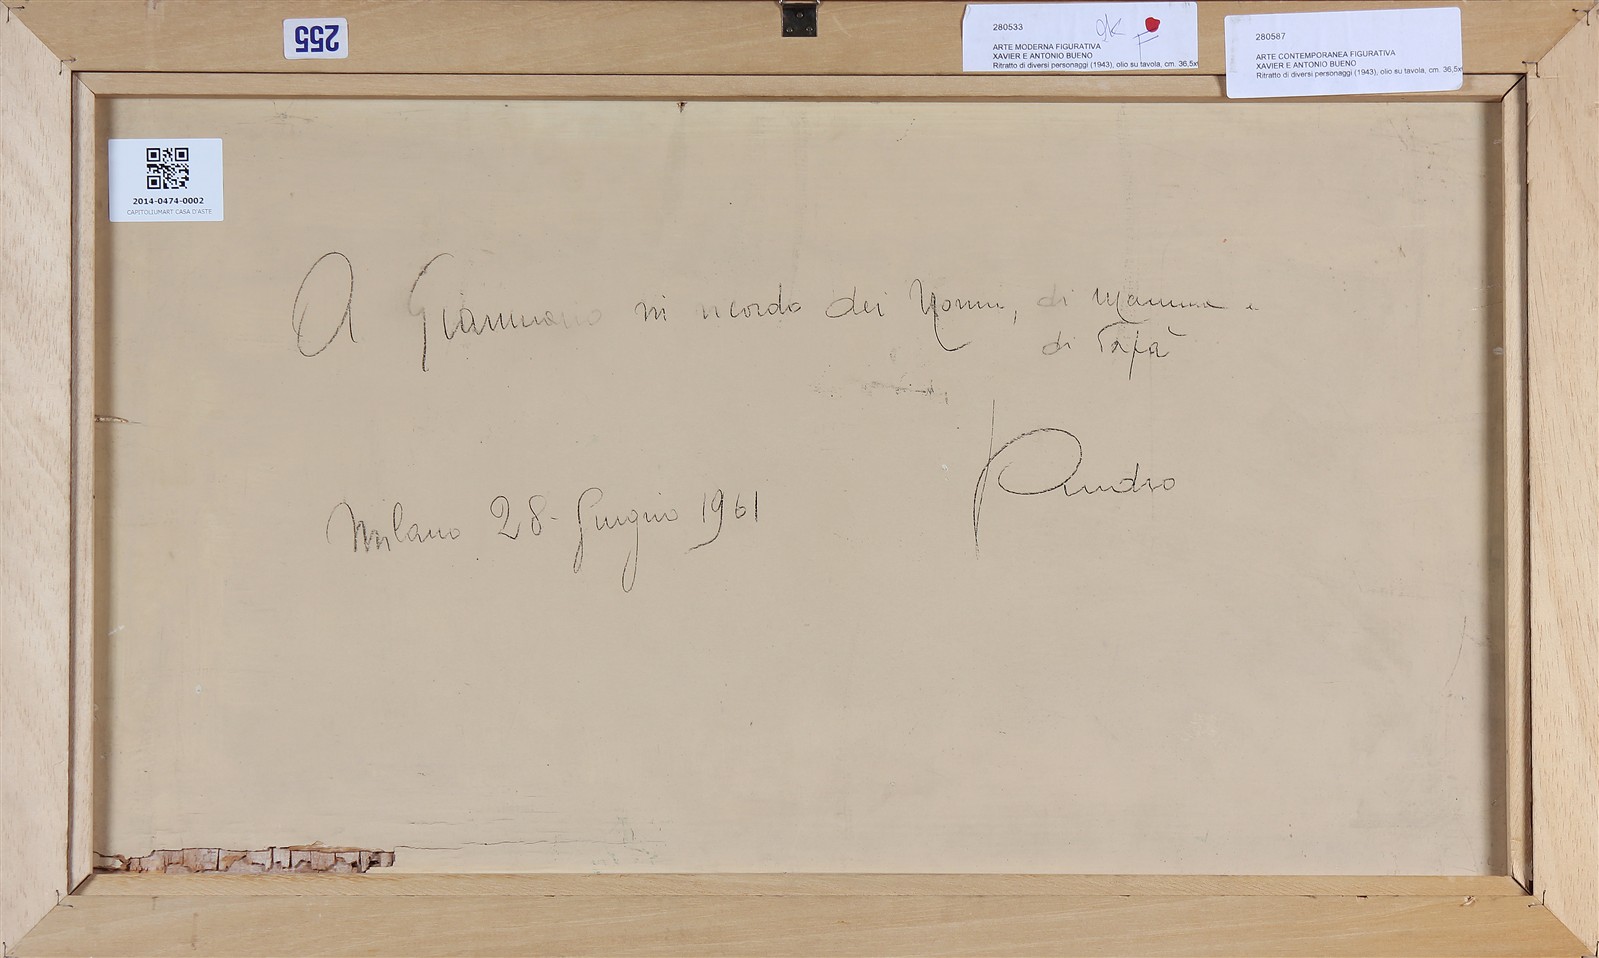 255
280533
ARTE MODERNA FIGURATIVA
XAVIER E ANTONIO BUENO
Ritratto di diversi personaggi (1943), olio su tavola, cm. 36,5x
280587
ARTE CONTEMPORANEA FIGURATIVA
XAVIER E ANTONIO BUENO
Ritratto di diversi personaggi (1943), olio su tavola, cm. 36,5x
2014-0474-0002
CAPITOLIUMART CASA D'ASTE
A in ricordo dei Nonni, di Mamma e
di Papà
Milano 28 Giugno 1961